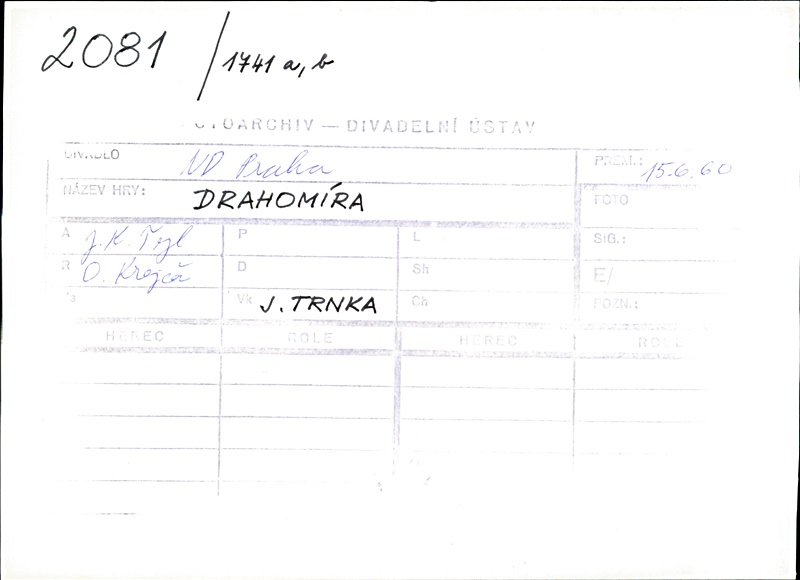 2081 / 1741 a, b
FOTOARCHIV — DIVADELNÍ ÚSTAV
DIVADLO ND Praha PREM.: 15.6.60
NÁZEV HRY: DRAHOMÍRA FOTO
A J. K. Tyl P L SIG.:
R O. Krejča D Sh E/
Vk J. TRNKA Ch POZN.:
HEREC ROLE HEREC ROLE